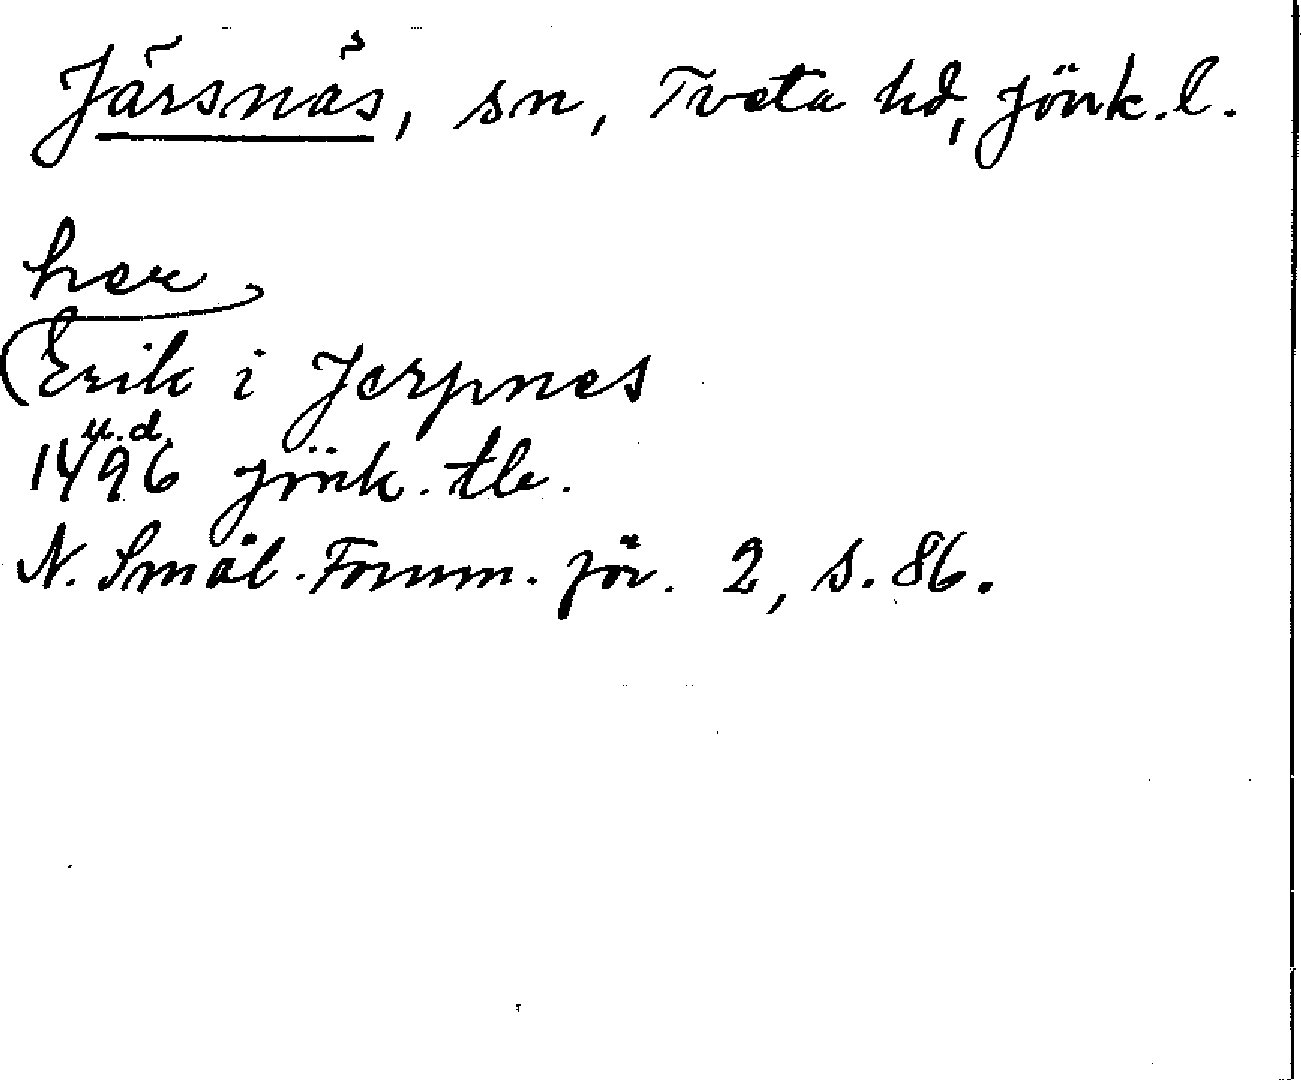 Järsnäs, sn, Tveta hd, Jönk. l.
her
Erik i Jerpnes
u.d.
1496 Jönk. tb.
N. Smål. Fornm. för. 2, s. 86.